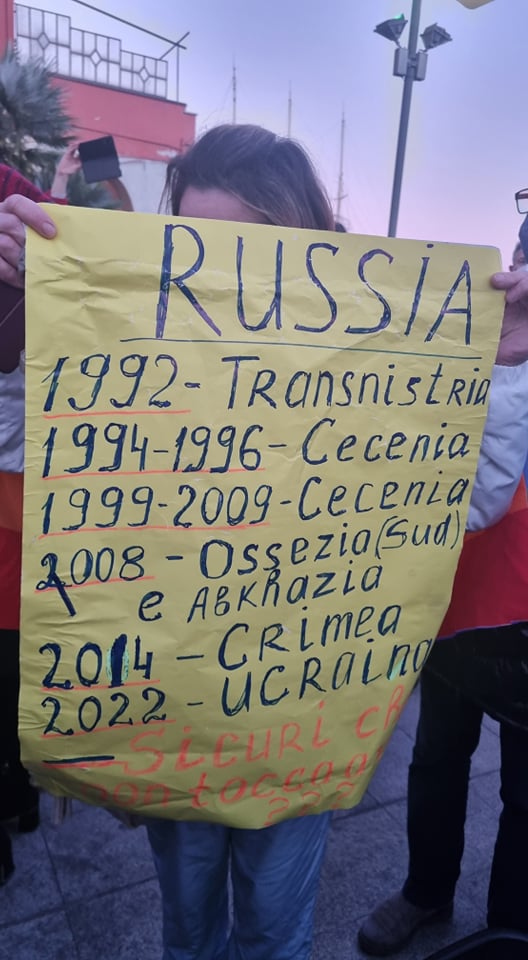 RUSSIA
1992- Transnistria
1994-1996- Cecenia
1999-2009-Cecenia
2008 - Ossezia(Sud)
e ABKhAZIA
2014 - CRimea
2022 - UCRAina
- Sicuri
non
???